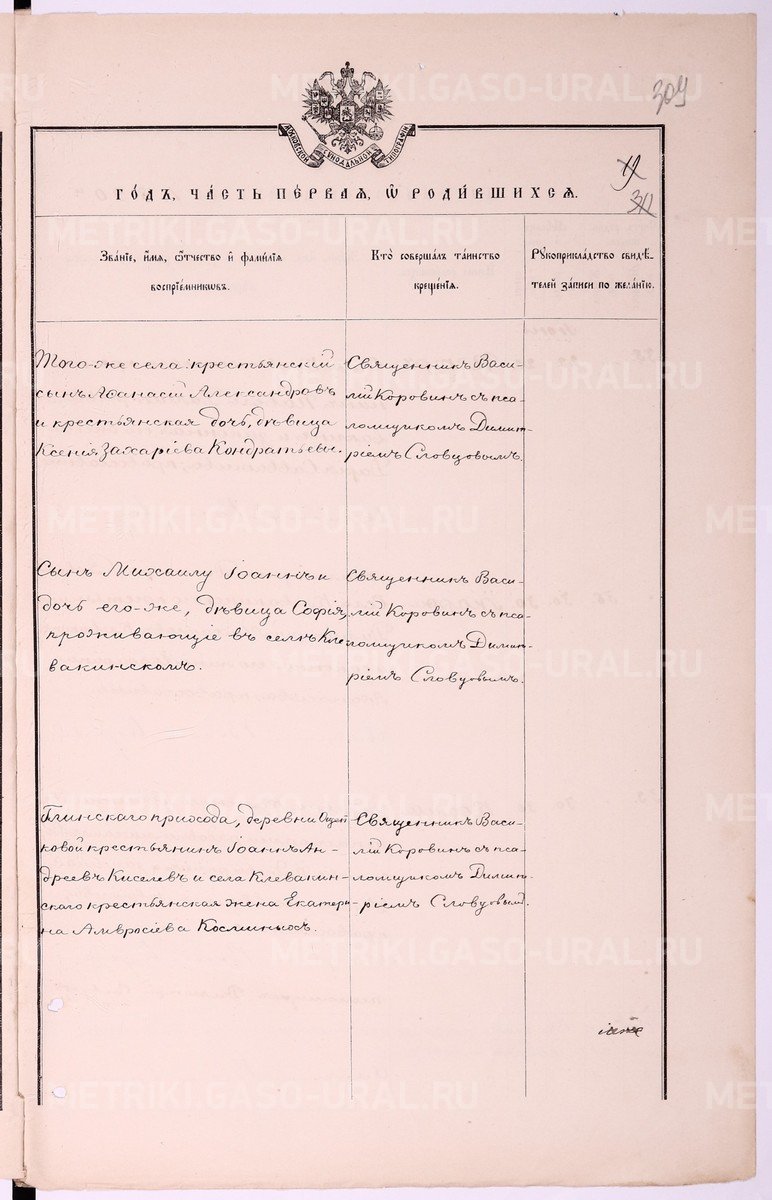 METRIKI.GASO-URAL.RU
309
МОСКОВСКОЙ СѴНОДАЛЬНОЙ ТИПОГРАФІИ
ГО́ДЪ, ЧА́СТЬ ПЕ́РВАЯ, Ѡ҆ РОДИ́ВШИХСЯ.
Зва́нїе, и҆́мя, ѻ҆́тчество и҆ фами́лїя
воспрїе́мникѡвъ.
Кто̀ соверша́лъ та́инство
креще́нїя.
Рꙋкоприкла́дство свидѣ́-
телей за́писи по жела́нїю.
Того-же села крестьянскій
сынъ Аѳанасій Александровъ
и крестьянская дочь, дѣвица
Ксенія Захаріева Кондратьевы.
Священникъ Васи-
лій Коровинъ съ пса-
ломщикомъ Димит-
ріемъ Словцовымъ.
Сынъ Михаилу Іоаннъ и
дочь его-же, дѣвица Софія,
проживающіе въ селѣ Кле-
вакинскомъ.
Священникъ Васи-
лій Коровинъ съ пса-
ломщикомъ Димит-
ріемъ Словцовымъ.
Глинскаго прихода, деревни
ковой крестьянинъ Іоаннъ Ан-
дреевъ Киселевъ и села Клевакин-
скаго крестьянская жена Екатери-
на Амвросіева Косминыхъ.
Священникъ Васи-
лій Коровинъ съ пса-
ломщикомъ Димит-
ріемъ Словцовымъ.